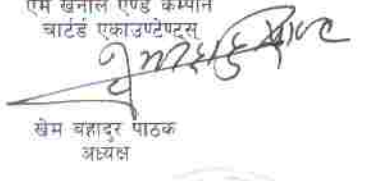 एम खनाल एण्ड कम्पनि
चार्टर्ड एकाउण्टेण्ट्स
खेम बहादुर पाठक
अध्यक्ष